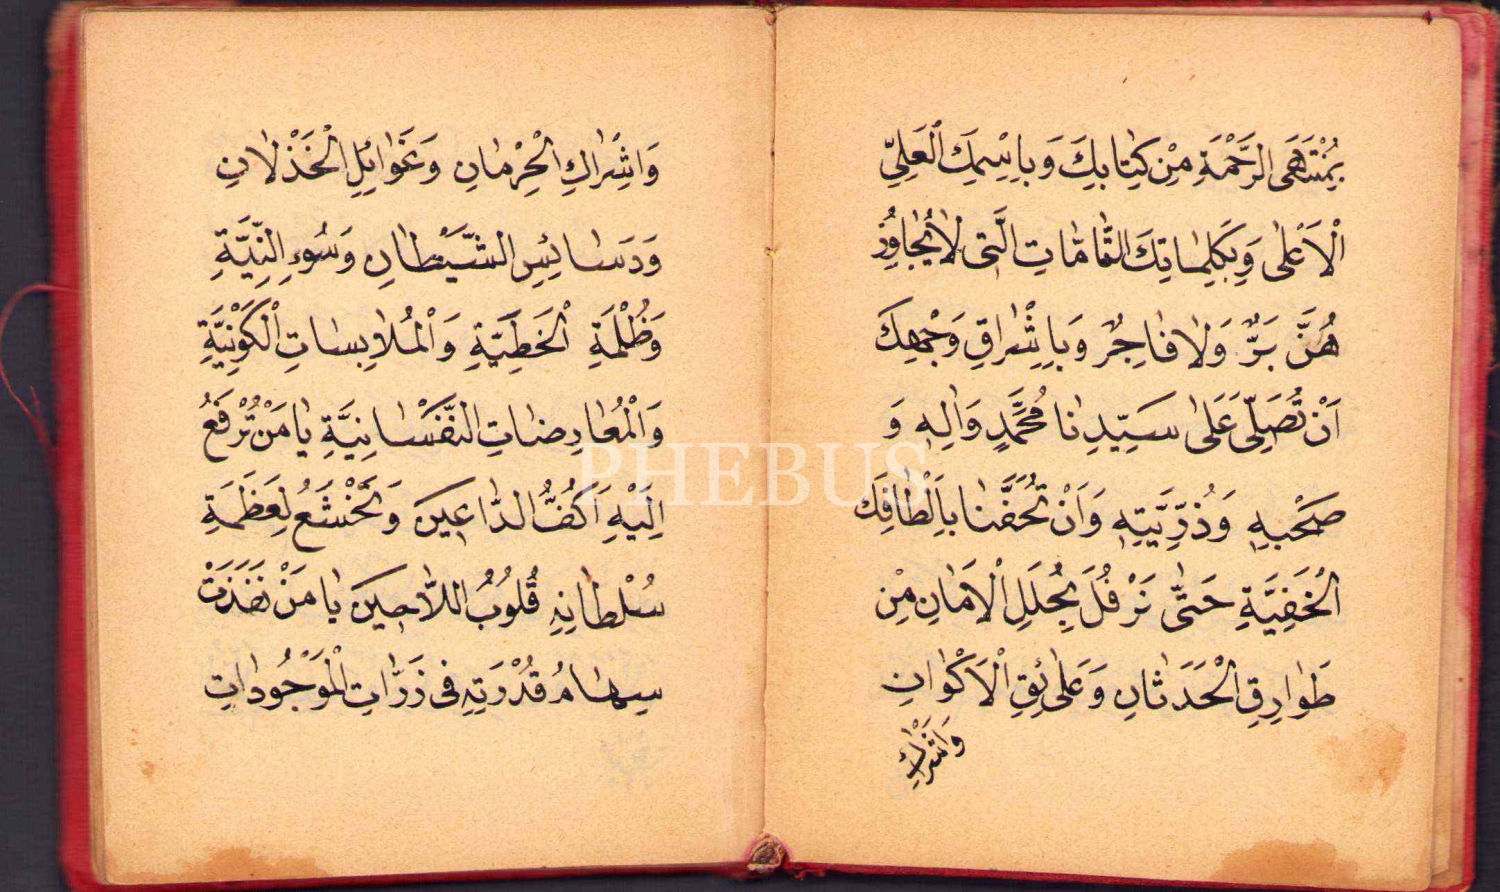 بِمُنْتَهَى الرَّحْمَةِ مِنْ كِتَابِكَ وَبِاسْمِكَ الْعَلِيِّ
الْاَعْلٰى وَبِكَلِمَاتِكَ التَّامَّاتِ الَّتِى لَايُجَاوِزُ
هُنَّ بَرٌّ وَلَا فَاجِرٌ وَبِاِشْرَاقِ وَجْهِكَ
اَنْ تُصَلِّىَ عَلٰى سَيِّدِنَا مُحَمَّدٍ وَاٰلِهٖ وَ
صَحْبِهٖ وَذُرِّيَّتِهٖ وَاَنْ تُحَفَّنَا بِاَلْطَافِكَ
الْخَفِيَّةِ حَتّٰى نَرْفُلَ بِحُلَلِ الْاَمَانِ مِنْ
طَوَارِقِ الْحَدَثَانِ وَعَلَائِقِ الْاَكْوَانِ
وَاَشْرَاكِ
وَاَشْرَاكِ الْحِرْمَانِ وَغَوَائِلِ الْخَذْلَانِ
وَدَسَائِسِ الشَّيْطَانِ وَسُوءِ النِّيَّةِ
وَظُلْمَةِ الْخَطِيَّةِ وَالْمُلَابِسَاتِ الْكَوْنِيَّةِ
وَالْمُعَارِضَاتِ النَّفْسَانِيَّةِ يَا مَنْ تُرْفَعُ
اِلَيْهِ اَكُفُّ الدَّاعِينَ وَتَخْشَعُ لِعَظَمَةِ
سُلْطَانِهِ قُلُوبُ اللَّاجِينَ يَا مَنْ نَفَذَتْ
سِهَامُ قُدْرَتِهِ فِى ذَرَّاتِ الْمَوْجُودَاتِ
PHEBUS